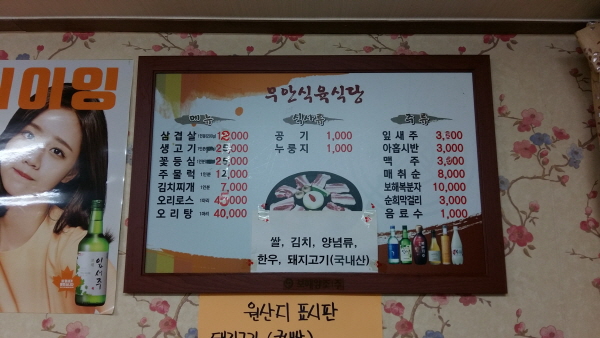 이아잉
잎새주
무안식육식당
메뉴
삼겹살
생고기
꽃등심
주물럭 1인분
김치찌개 1인분 7,000
오리로스 1마리
오리탕 1마리 40,000
식사류
공기 1,000
누룽지 1,000
주류
잎새주
아홉시반 3,000
맥주
매취순 8,000
보해복분자 10,000
순희막걸리 3,000
음료수 1,000
쌀, 김치, 양념류,
한우, 돼지고기(국내산)
원산지 표시판
돼지고기